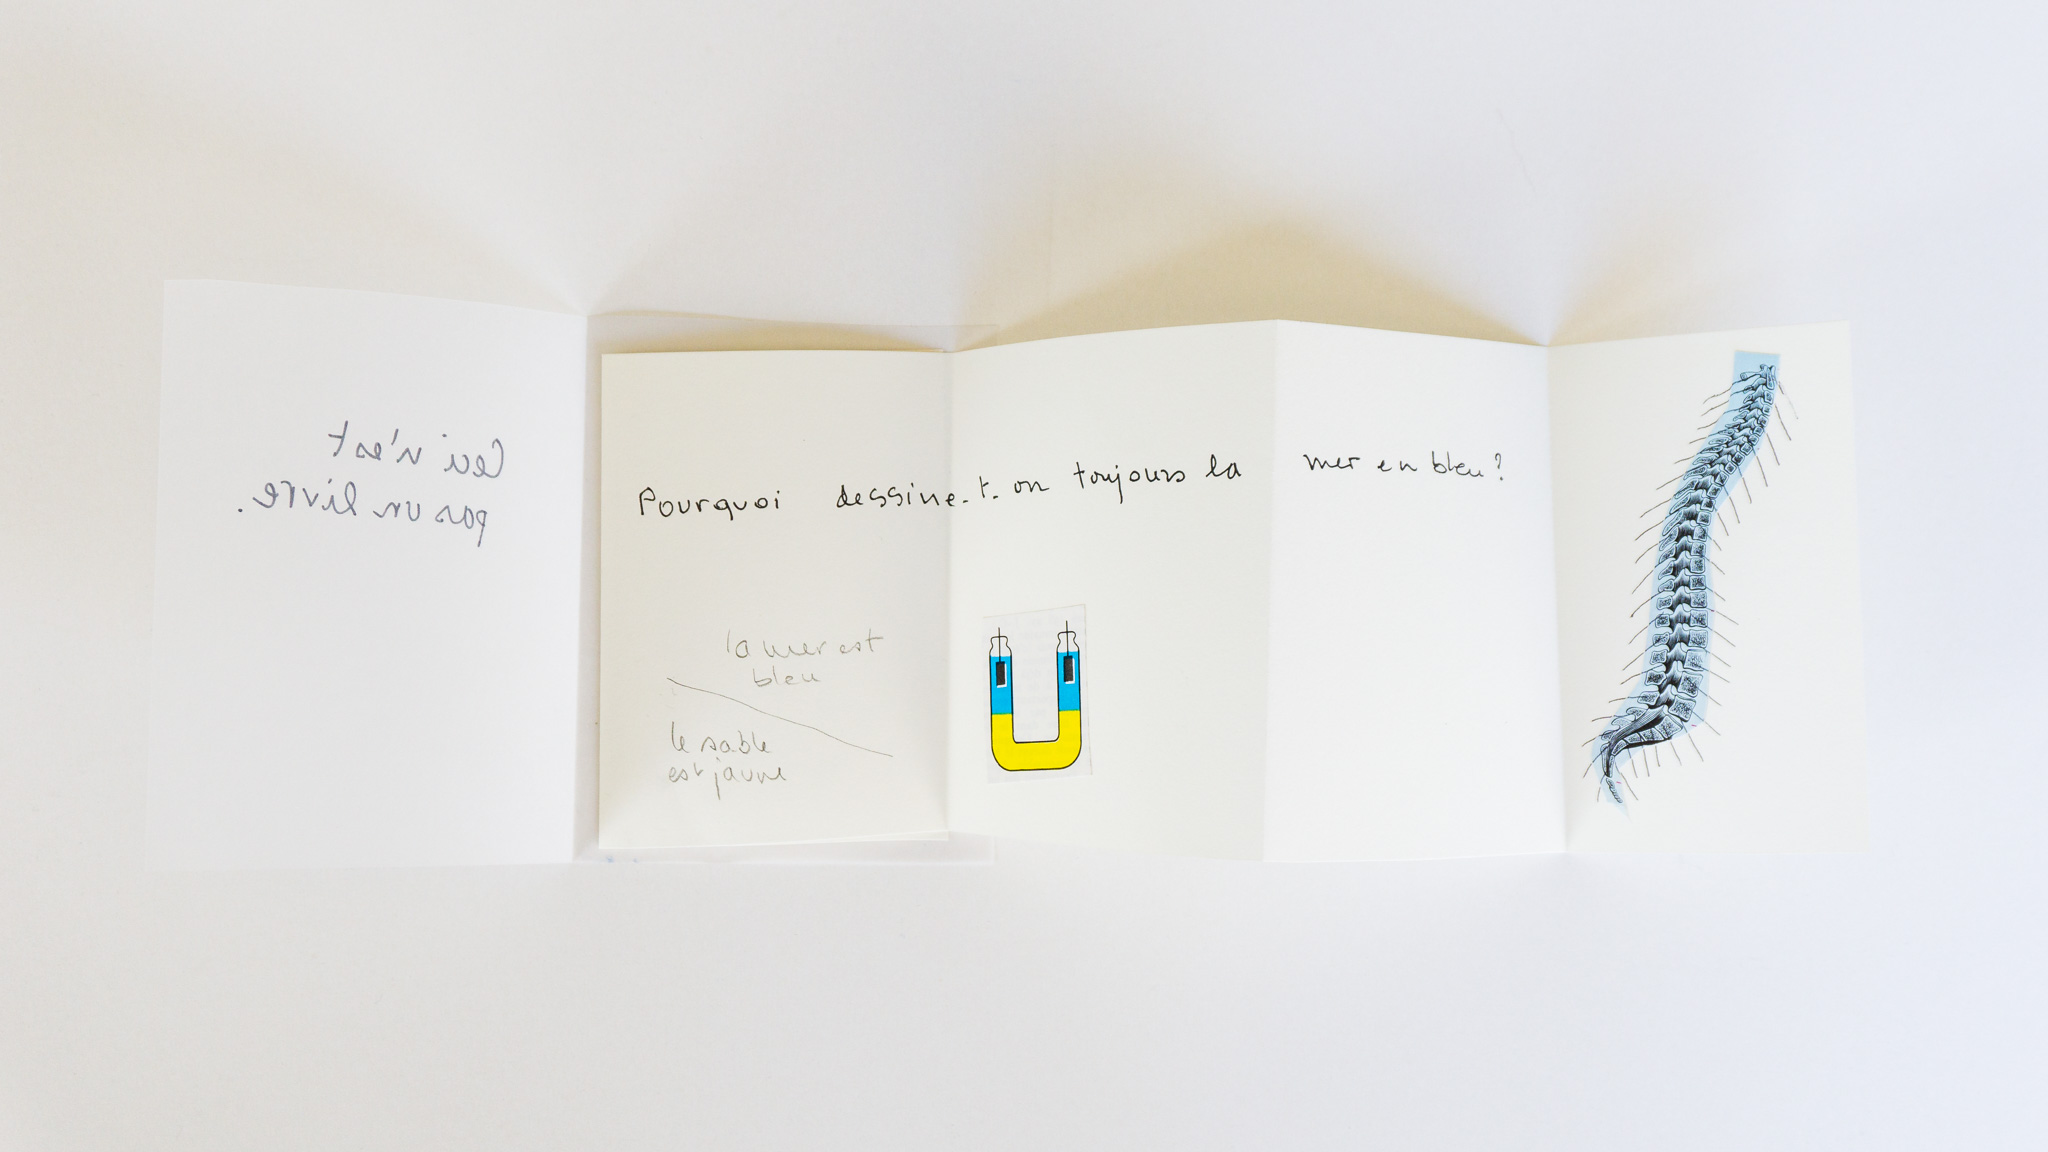 Ceci n'est
pas un livre.
Pourquoi dessine-t-on toujours la mer en bleu?
la mer est
bleu
le sable
est jaune